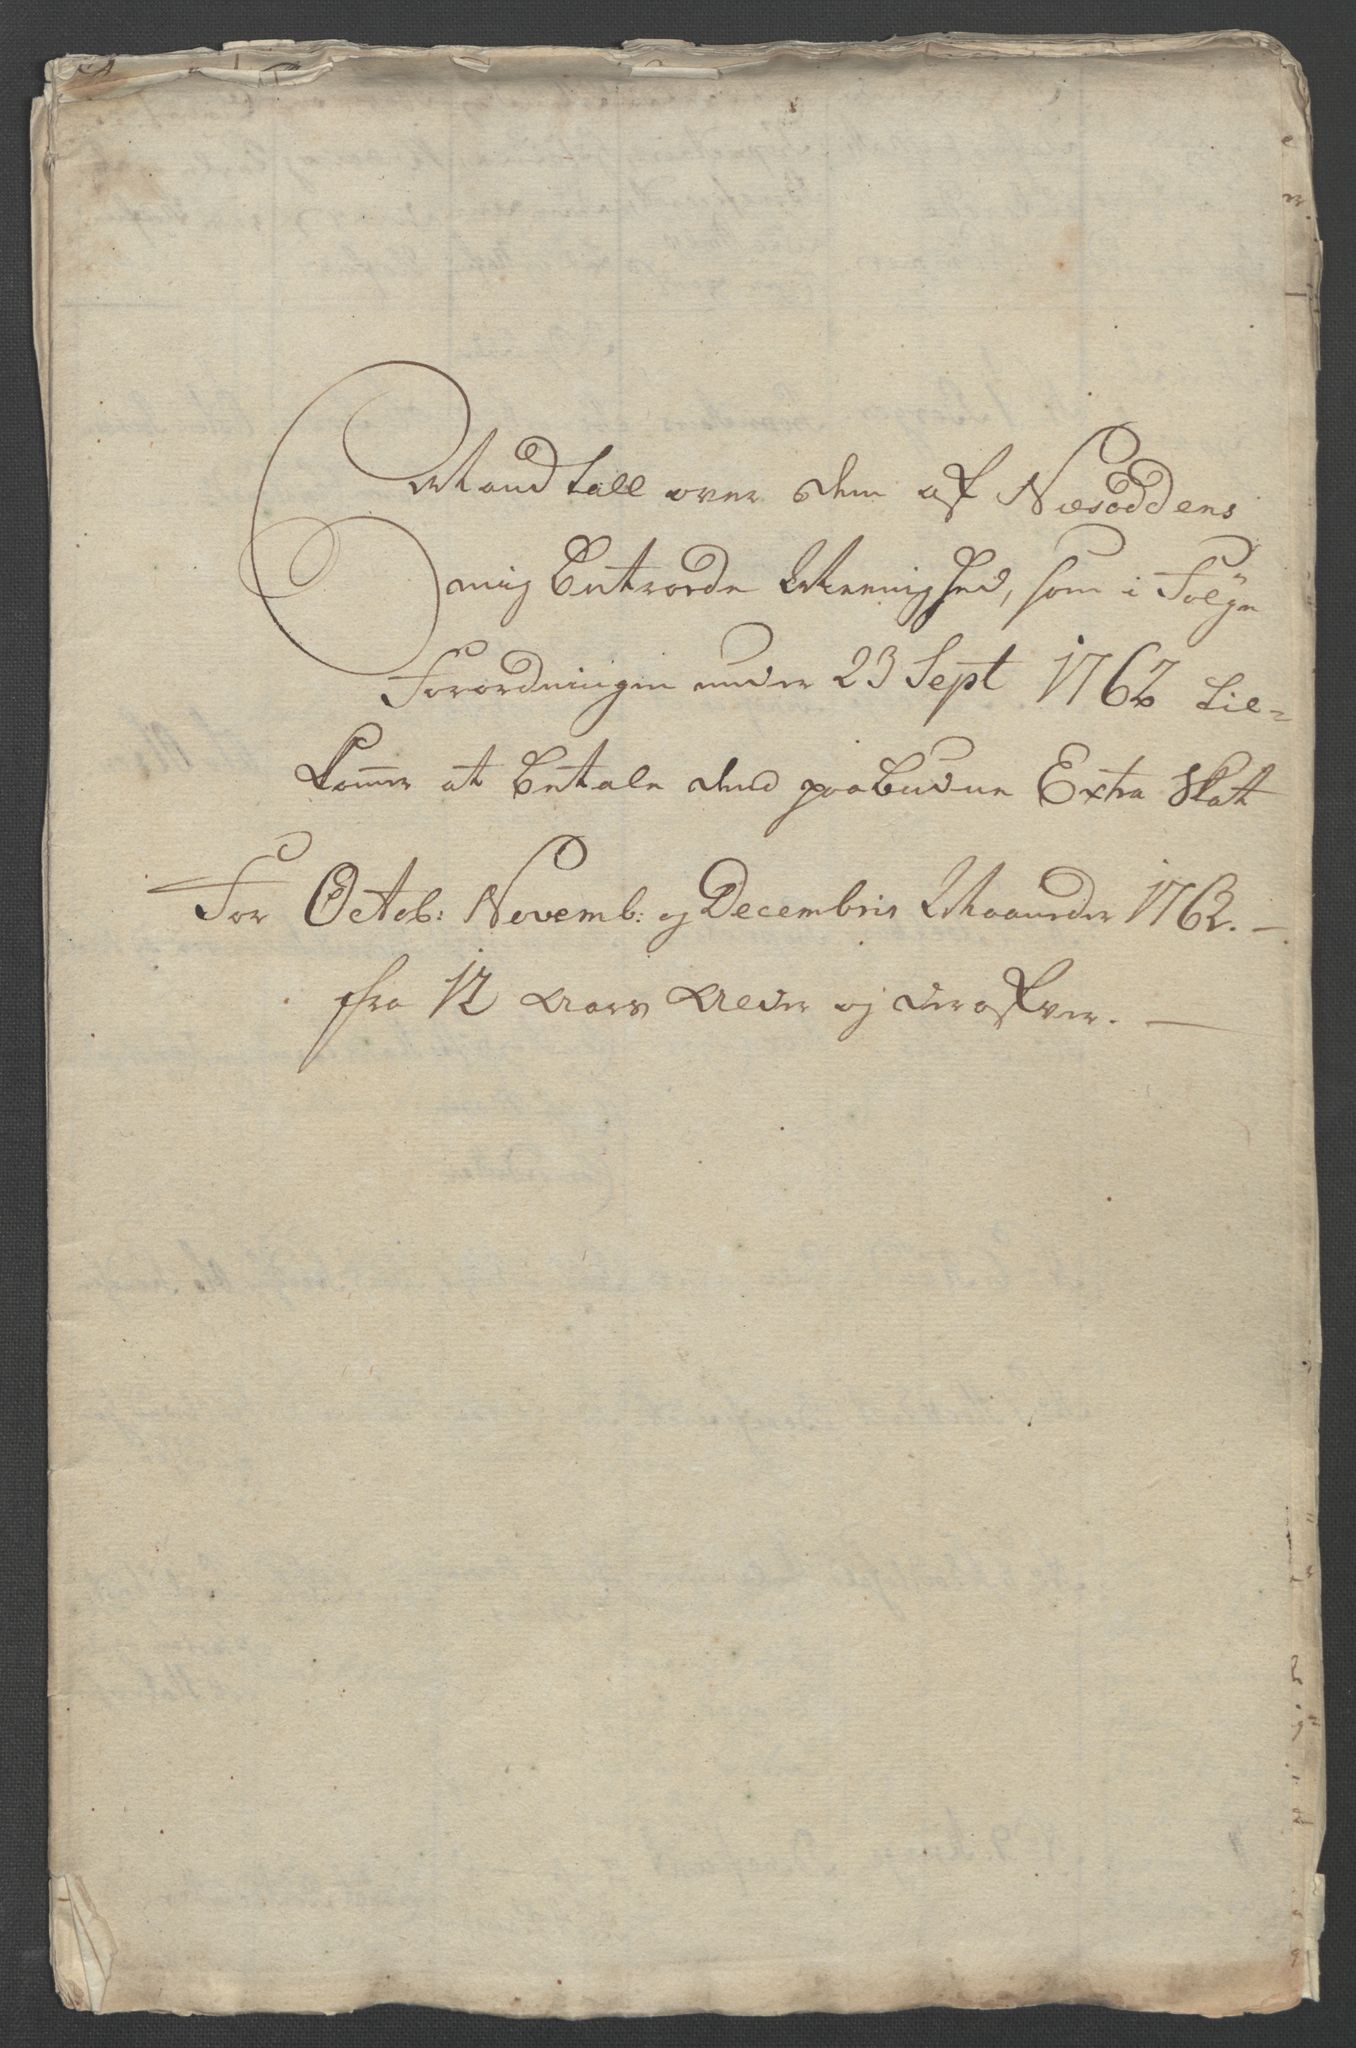 Mandtall over dem af Næsoddens
mig betroede Meenighed, som i Følge
Forordningen under 23 Sept 1762 til-
kom̄er at betale dend paabudne Extra Skat
For Octob: Novemb: og Decembris Maaneder 1762. -
fra 12 Aars Alder og derofver. -